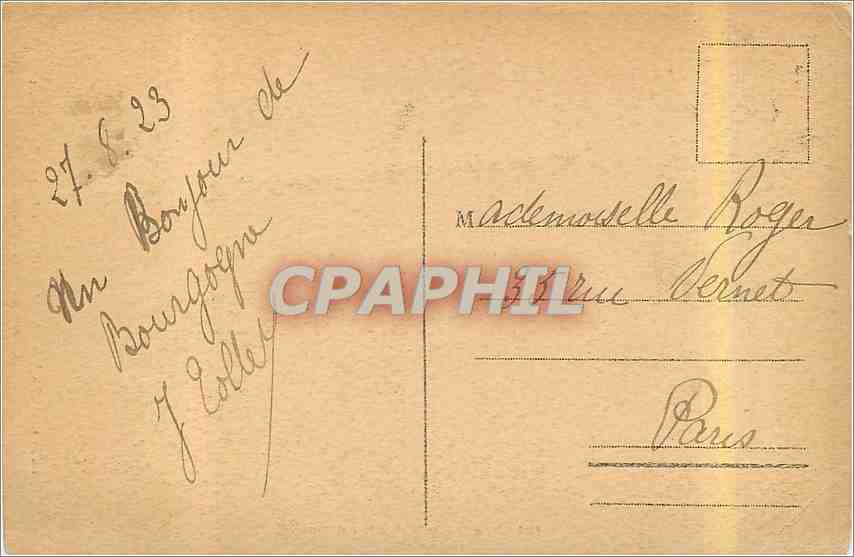 27.8.23
Un Bonjour de
Bourgogne
J
Mademoiselle Roger
35 rue Vernet
Paris
CPAPHIL